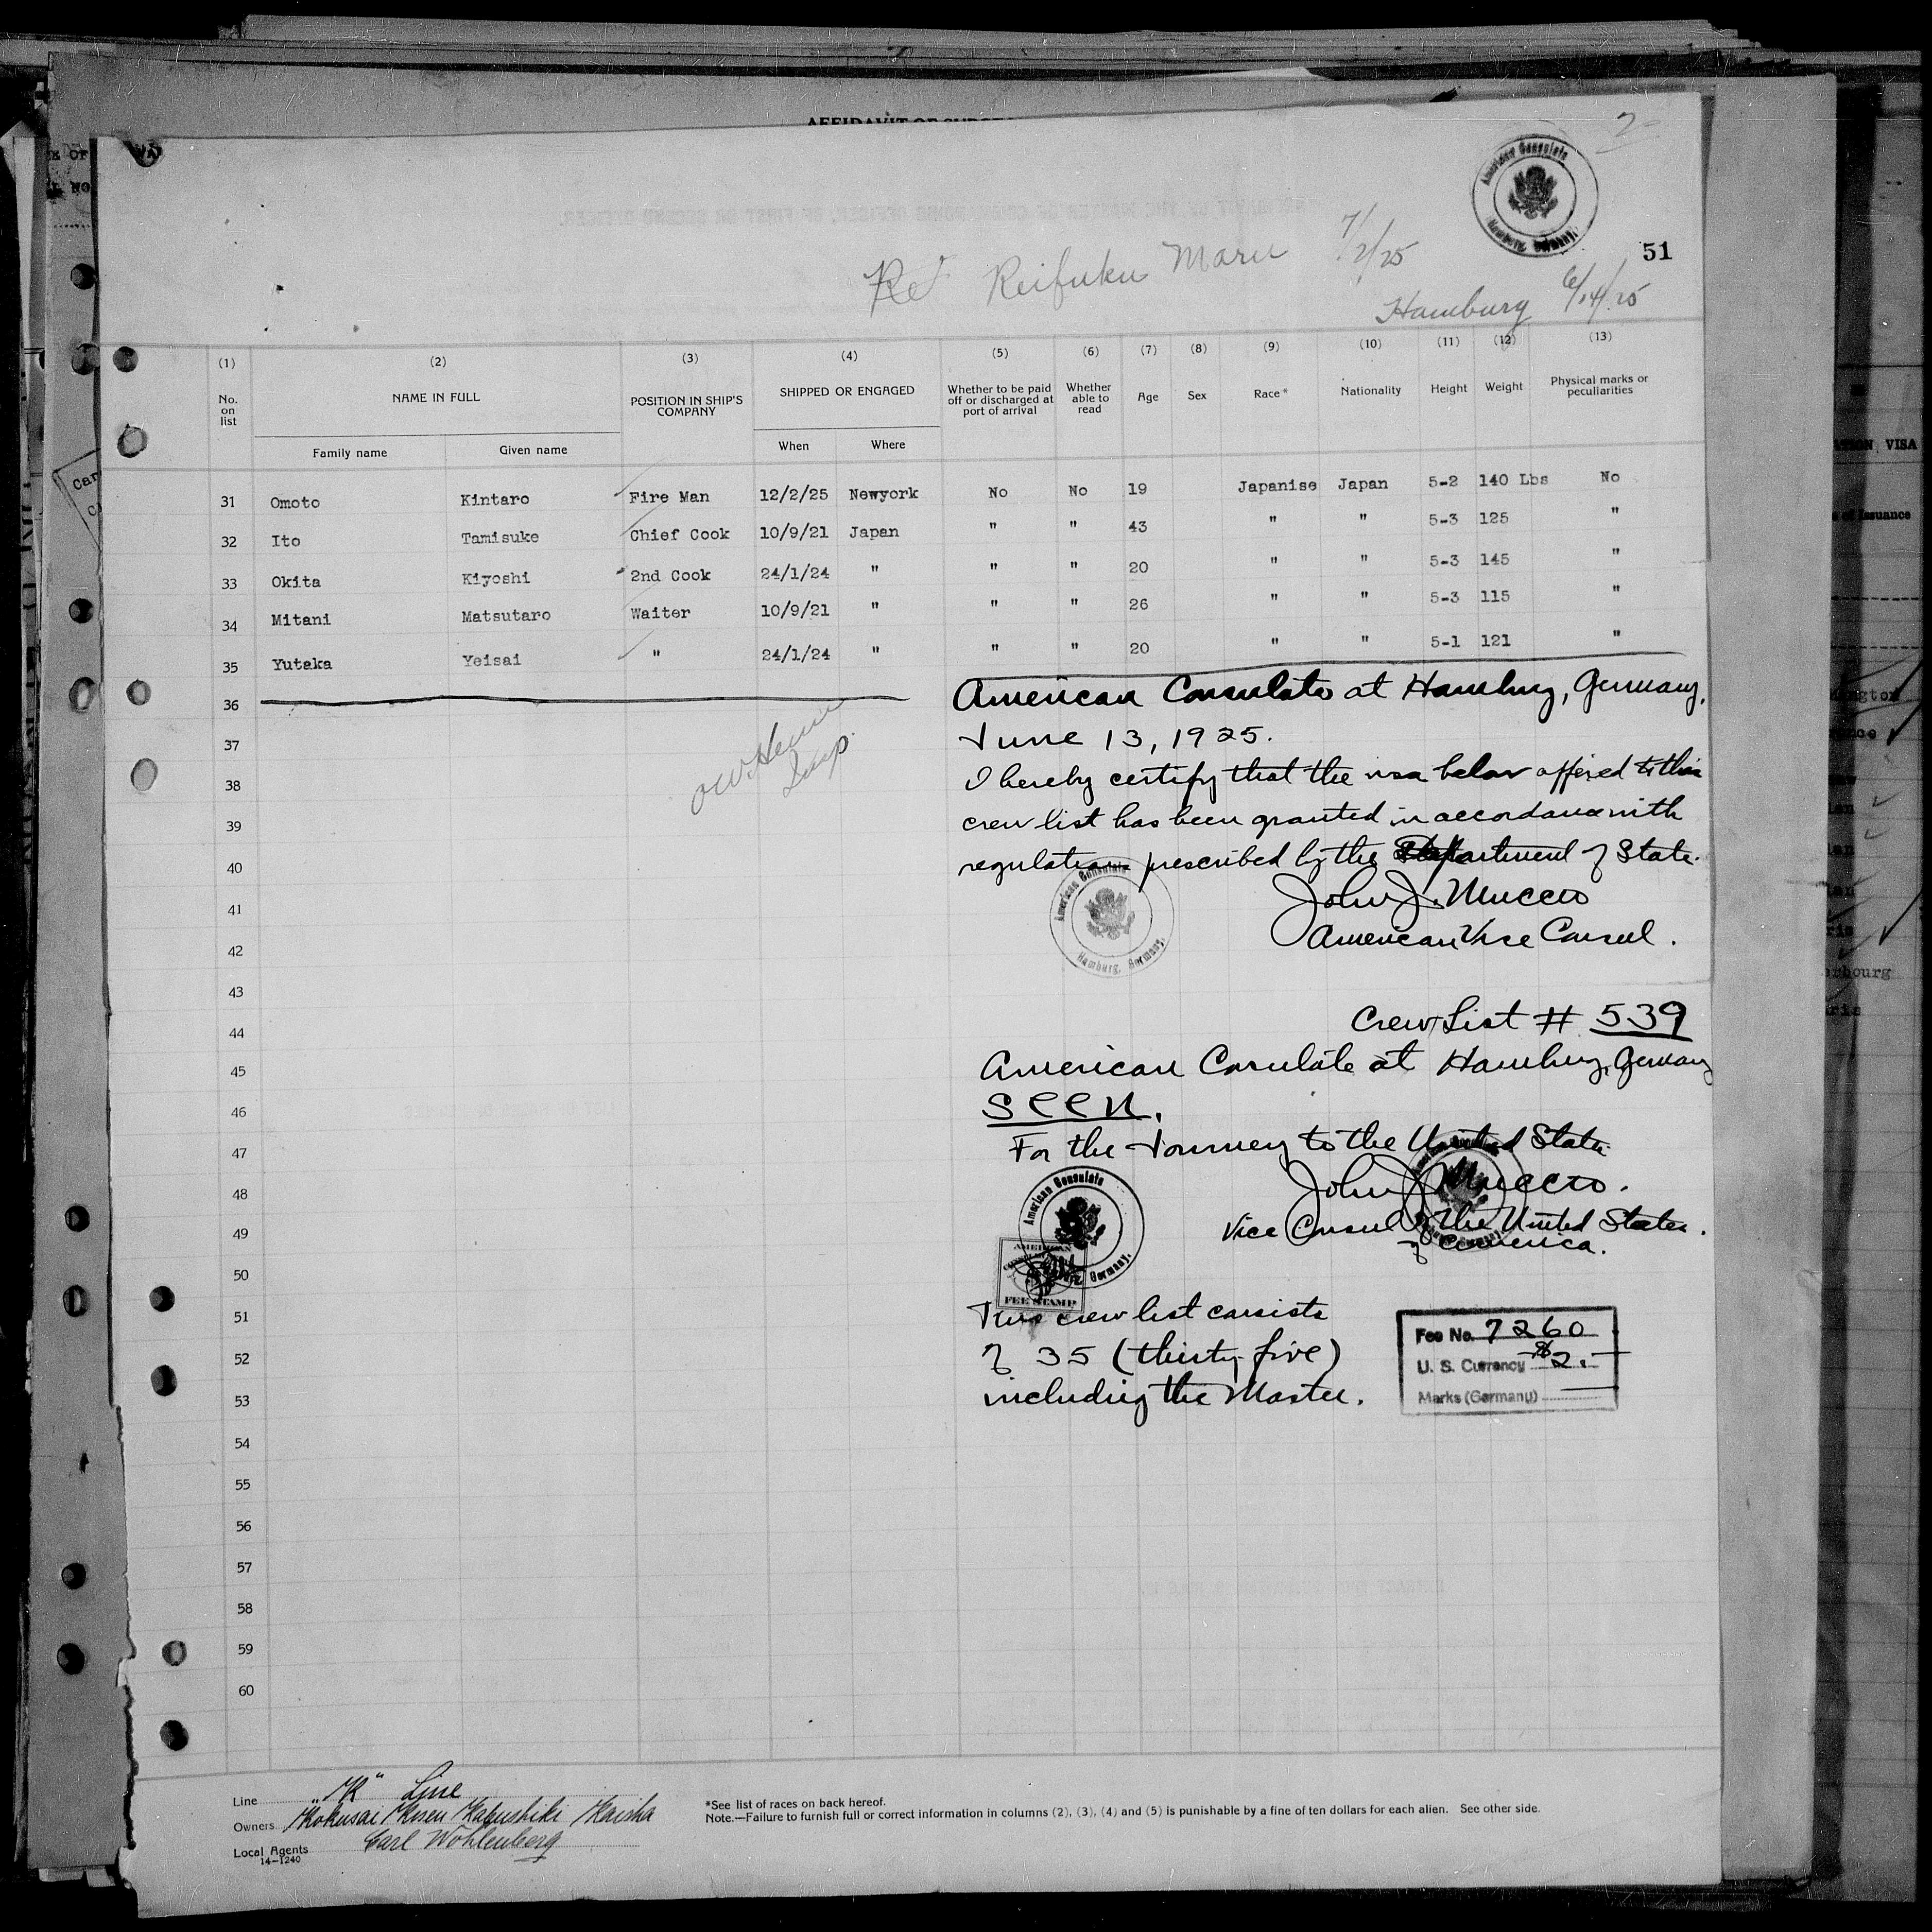 AFFIDAVIT OF
2
American Consulate
Hamburg, Germany.
51
Reifuku Maru 7/2/25
Hamburg 6/14/25
(1) (2) (3) (4) (5) (6) (7) (8) (9) (10) (11) (12) (13)
No. on list NAME IN FULL POSITION IN SHIP'S COMPANY SHIPPED OR ENGAGED Whether to be paid off or discharged at port of arrival Whether able to read Age Sex Race* Nationality Height Weight Physical marks or peculiarities
Family name Given name When Where
31 Omoto Kintaro Fire Man 12/2/25 Newyork No No 19 Japanise Japan 5-2 140 Lbs No
32 Ito Tamisuke Chief Cook 10/9/21 Japan " " 43 " " 5-3 125 "
33 Okita Kiyoshi 2nd Cook 24/1/24 " " " 20 " " 5-3 145 "
34 Mitani Matsutaro Waiter 10/9/21 " " " 26 " " 5-3 115 "
35 Yutaka Yeisai " 24/1/24 " " " 20 " " 5-1 121 "
36
37
38
39
40
41
42
43
44
45
46
47
48
49
50
51
52
53
54
55
56
57
58
59
60
American Consulate at Hamburg, Germany,
June 13, 1925.
I hereby certify that the visa below affixed to this
crew list has been granted in accordance with
regulations prescribed by the Department of State.
John J. Muccio
American Vice Consul.
American Consulate
Hamburg, Germany.
Crew List # 539
American Consulate at Hamburg, Germany
SEEN.
For the Journey to the United States
John J. Muccio.
Vice Consul of the United States
of America.
American Consulate
Germany.
AMERICAN
FEE STAMP
This crew list consists
of 35 (thirty-five)
including the Master.
Fee No. 7260
U. S. Currency $2.—
Marks (Germany) —
Line "K" Line
Owners Kokusai Kisen Kabushiki Kaisha
Local Agents Carl Wohlenberg
14—1240
*See list of races on back hereof.
Note.—Failure to furnish full or correct information in columns (2), (3), (4) and (5) is punishable by a fine of ten dollars for each alien. See other side.
VISA
of Issuance